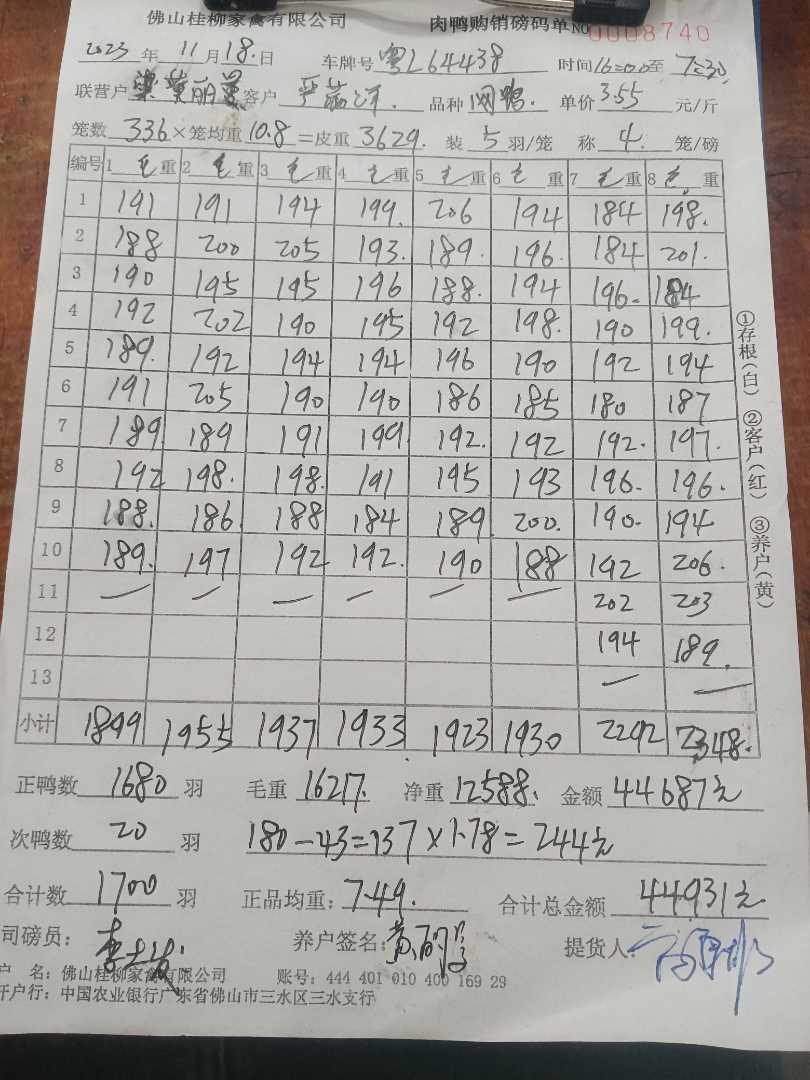 佛山桂柳家禽有限公司 肉鸭购销磅码单 NO 0008740
2023 年 11 月 18. 日 车牌号 粤L64438 时间 16:00 至 7:30.
联营户 莫丽 客户 严 品种 肉鸭. 单价 3.55 元/斤
笼数 336 ×笼均重 10.8 =皮重 3629. 装 5 羽/笼 称 4. 笼/磅
编号 1 毛 重 2 毛 重 3 毛 重 4 毛 重 5 毛 重 6 毛 重 7 毛 重 8 毛. 重
1 191 191 194 199. 206 194 184 198.
2 188 200 205 193. 189. 196. 184 201.
3 190 195 195 196 188. 194 196. 184
4 192 202 190 195 192 198. 190 199.
5 189. 192 194 194 196 190 192 194
6 191 205 190 190 186 185 180 187
7 189 189 191 199 192. 192 192. 197.
8 192 198. 198. 191 195 193 196. 196.
9 188. 186 188 184 189 200. 190. 194
10 189. 197 192 192. 190 188 192 206.
11 — — — — — — 202 203
12 194 189.
13 — —
小计 1899 1955 1937 1933 1923 1930 2292 2348.
正鸭数 1680 羽 毛重 16217. 净重 12588. 金额 44687元
次鸭数 20 羽 180-43=137×1.78=244元
合计数 1700 羽 正品均重: 7.49. 合计总金额 44931元
司磅员: 李 养户签名: 黄 提货人:
户 名: 佛山桂柳家禽有限公司 账号: 444 401 010 400 169 29
开户行: 中国农业银行广东省佛山市三水区三水支行
①存根(白) ②客户(红) ③养户(黄)